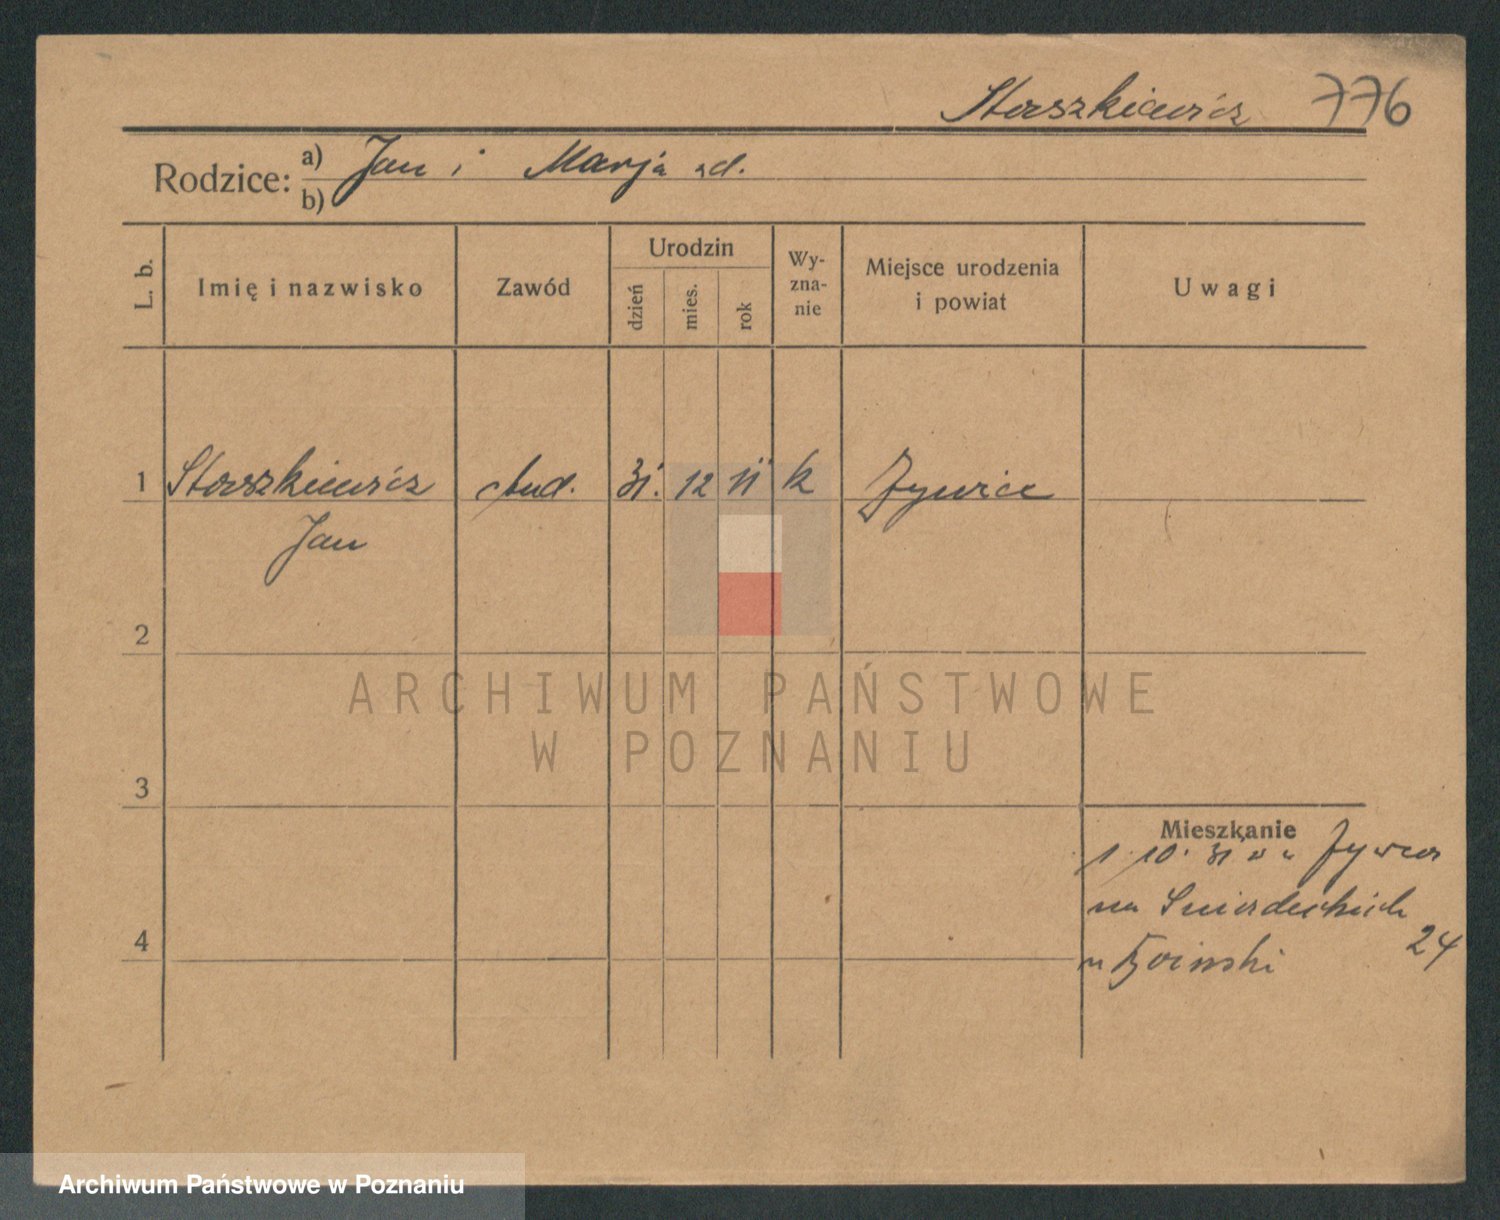 Staszkiewicz 776
Rodzice: a) Jan i Marja zd.
b)
L. b.
Imię i nazwisko
Zawód
Urodzin
dzień
mies.
rok
Wy-
zna-
nie
Miejsce urodzenia
i powiat
Uwagi
1 Staszkiewicz stud. 31. 12 11 k Żywiec
Jan
2
3
4
Mieszkanie
1 10. 31 z Żywca
na Śniadeckich
24
u
ARCHIWUM PAŃSTWOWE
W POZNANIU
Archiwum Państwowe w Poznaniu